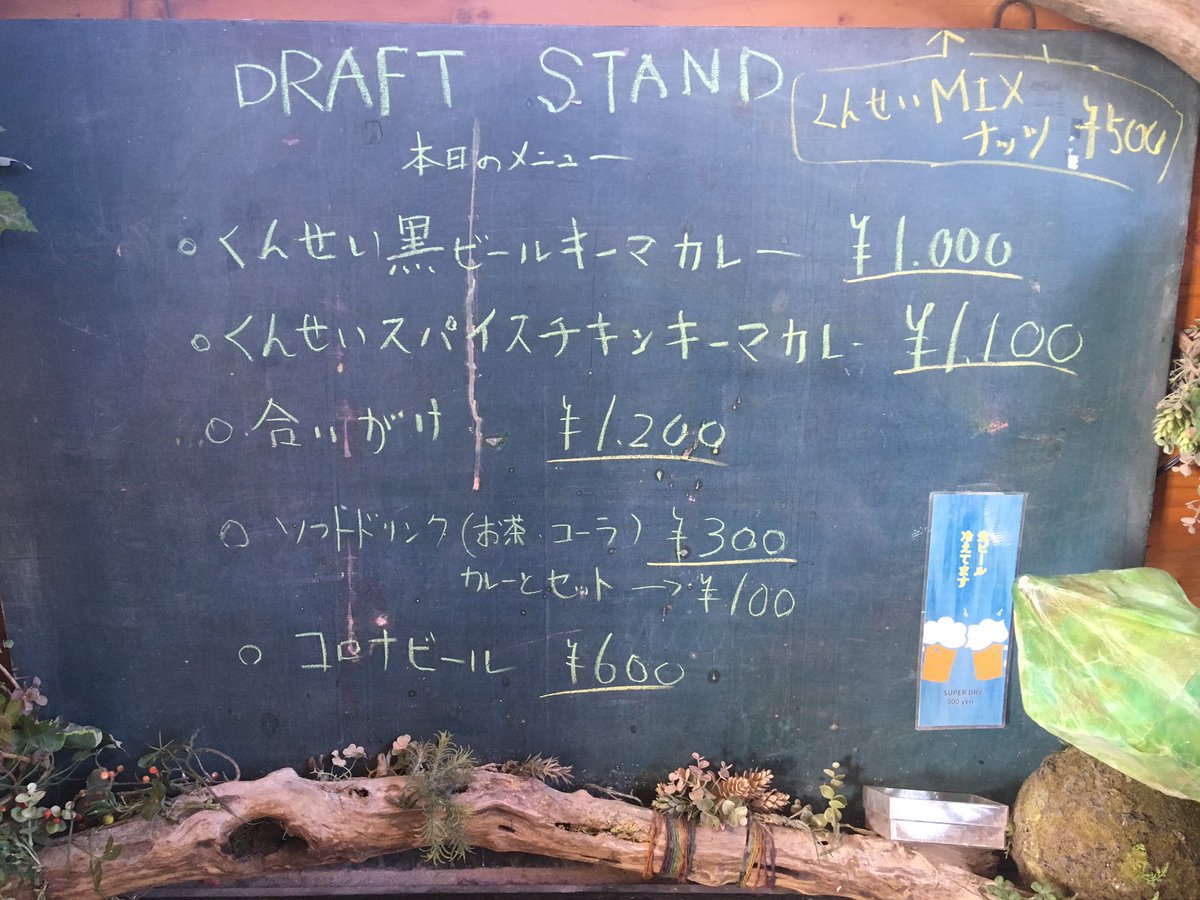 DRAFT STAND
くんせいMIX
ナッツ ¥500
本日のメニュー
○くんせい黒ビールキーマカレー ¥1.000
○くんせいスパイスチキンキーマカレー ¥1.100
○合いがけ ¥1.200
○ソフトドリンク(お茶・コーラ) ¥300
カレーとセット→¥100
○コロナビール ¥600
生ビール
冷えてます
SUPER DRY
500 yen